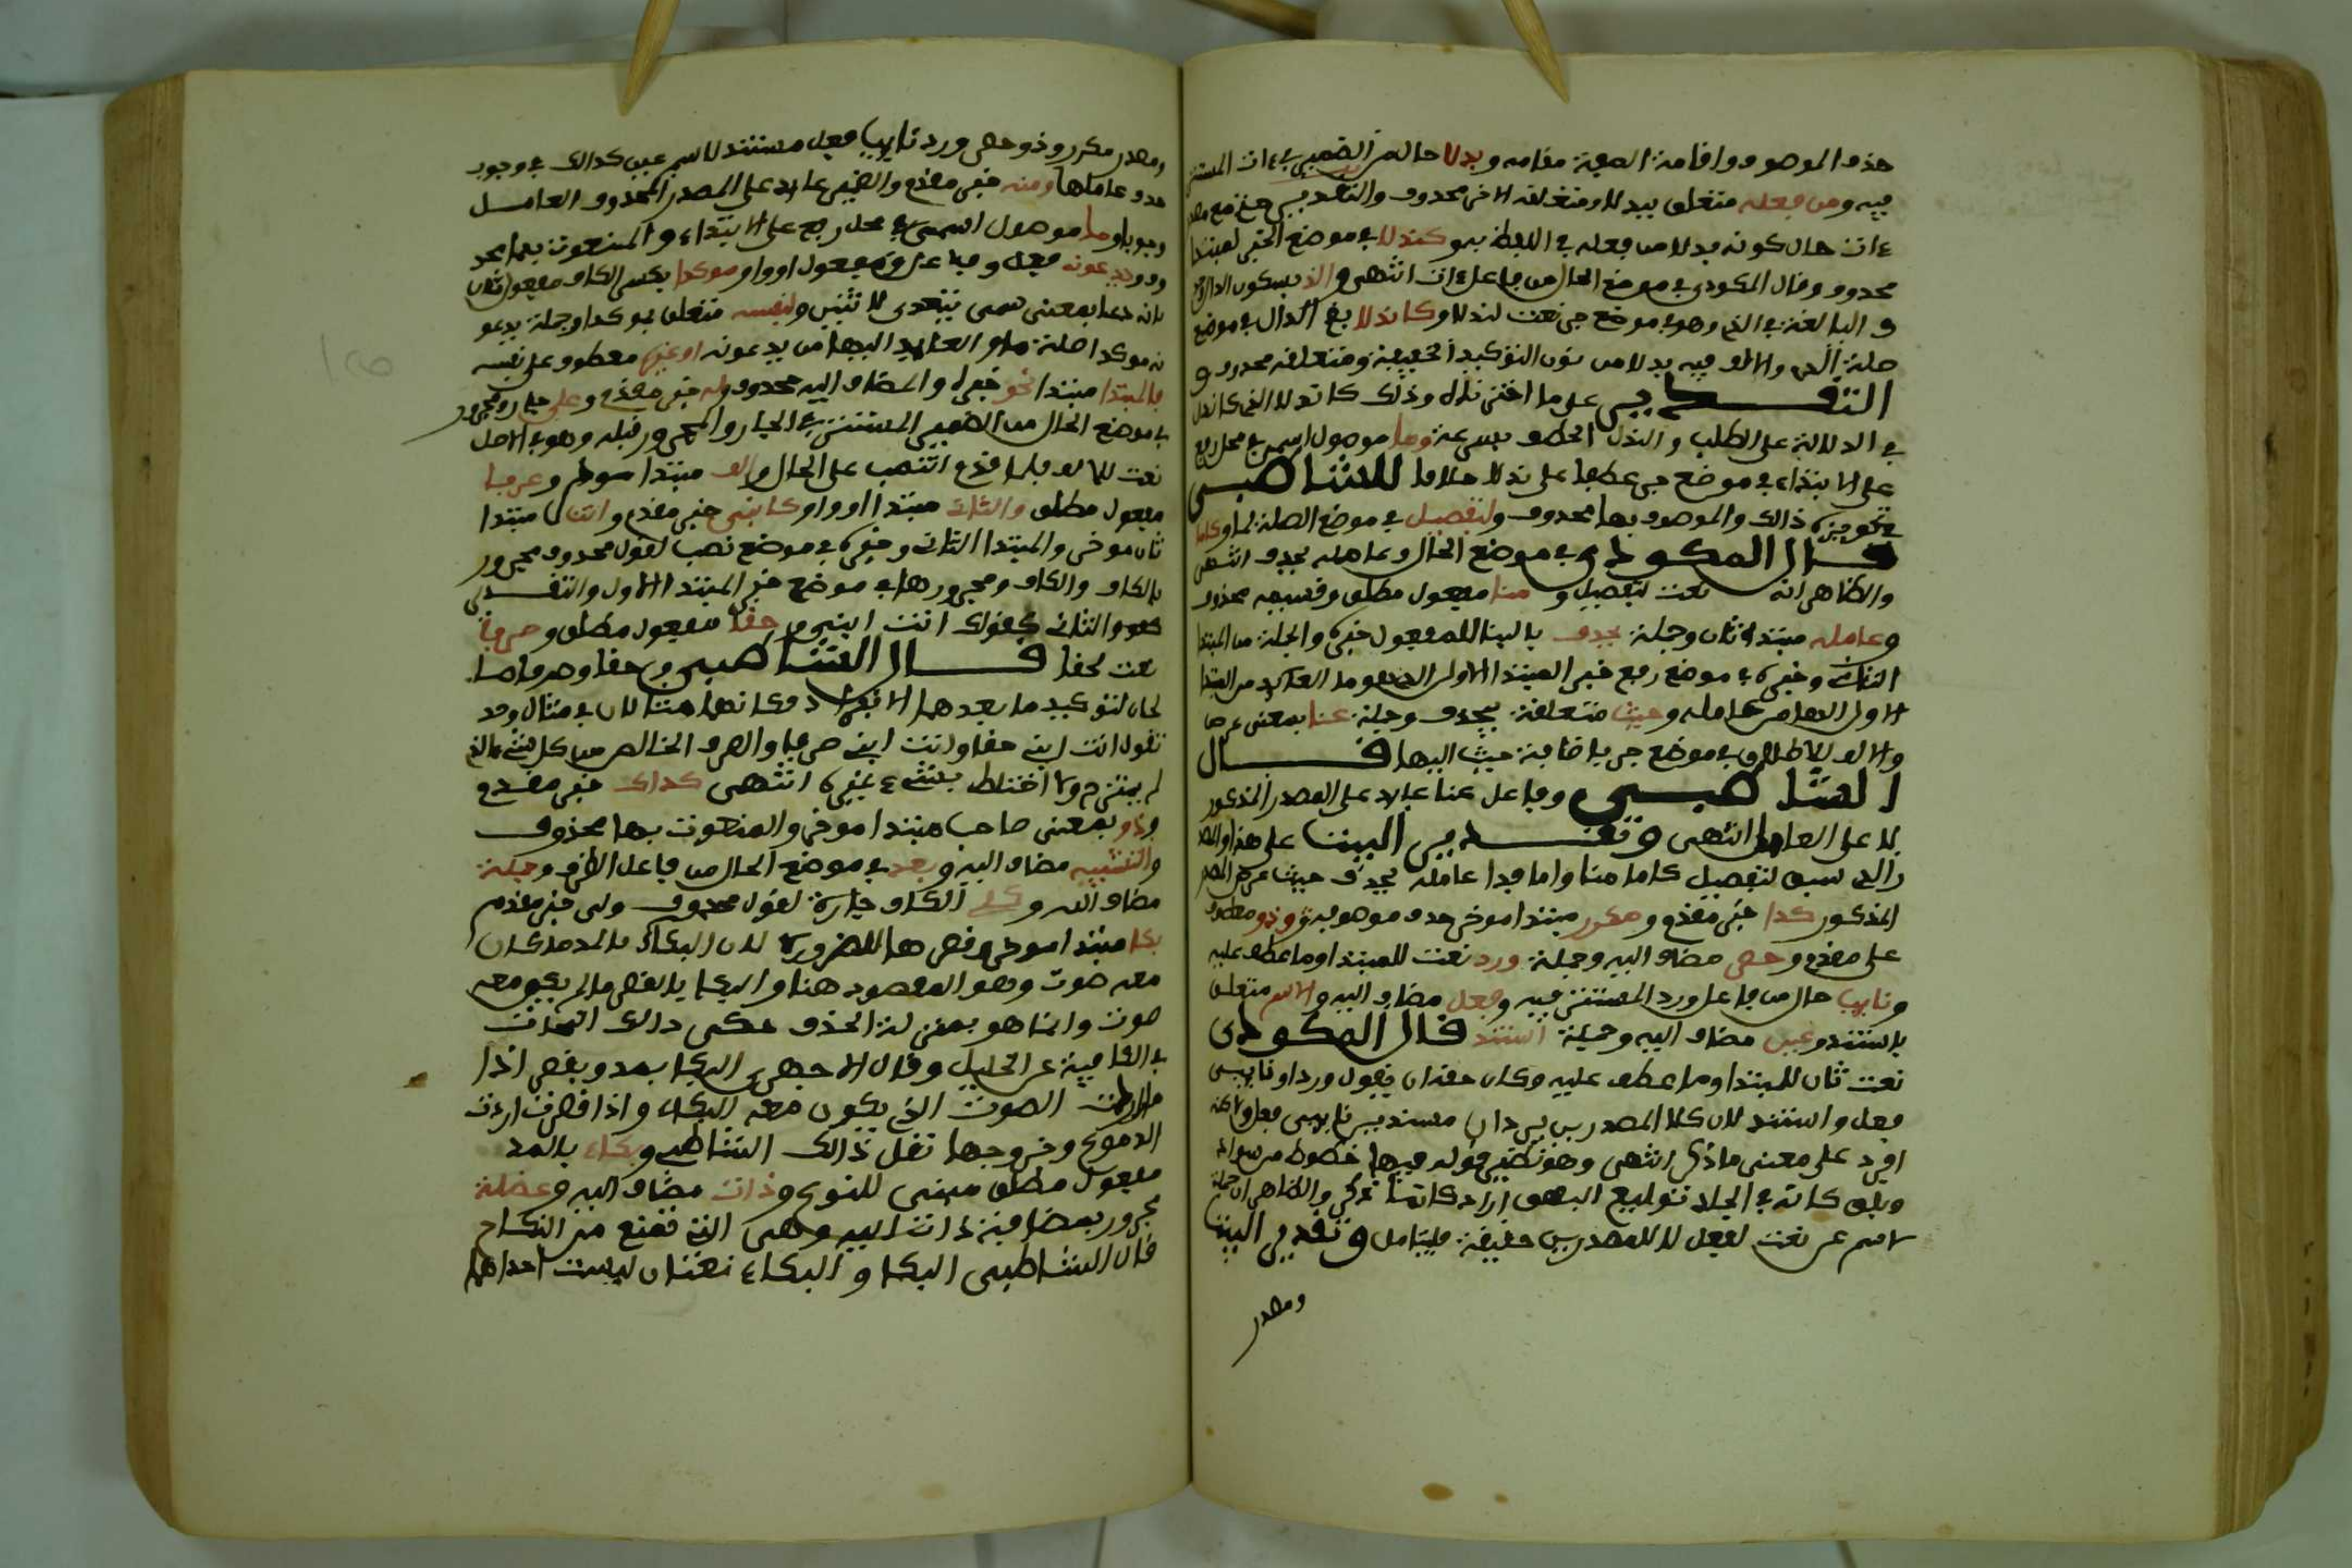 حذف الموصوف واقامة الصفة مقامه وبدلا حال من الضمير في ءات المستتر
فيه ومن فعله متعلق ببدلا ومتعلقه الاخر محذوف والتقدير
ءات حال كونه بدلا من فعله في اللفظ به وكندلا في موضع الخبر لمبتدا
محذوف وقال المكودي في موضع الحال من فاعل ءات انتهى والذ بسكون الذال
في الذي وهو في موضع جر نعت لندلا وكاندلا في موضع
صلة الذي والالف فيه بدلا من نون التوكيد الخفيفة ومتعلقه محذوف و
التقدير على ما اخترناه وذلك كاندلا الذي كاندلا
في الدلالة على الطلب والندل الخطف بسرعة وما موصول اسمي في محل رفع
على الابتداء في موضع جر عطفا على ندلا خلافا للشاطبي
في تجويزه ذلك والموصوف بها محذوف ولتفصيل في موضع الصلة لما وكاما
قال المكودي في موضع الحال وعامله يحذف انتهى
والظاهر انه نعت لتفصيل ومنا مفعول مطلق وقسيمه محذوف
وعامله مبتدا ثان وجملة يحذف بالبنا للمفعول خبره والجملة من المبتدا
الثاني وخبره في موضع رفع خبر المبتدا الاول الذي هو ما العائد من المبتدا
الاول الهاء من عامله وحيث متعلقة بيحذف وجملة عنا بمعنى عرضا
والالف للاطلاق في موضع جر باضافة حيث اليها قال
الشاطبي وفاعل عنا عائد على المصدر المذكور
لا على العامل انتهى وتقدير البيت على هذا والمصد
ر الذي سيق لتفصيل كاما منا واما فدا عامله يحذف حيث عرض المصدر
المذكور كذا خبر مقدم ومكرر مبتدا موخر حذف موصوفه وذو معطوف
على مقدم وحصر مضاف اليه وجملة ورد نعت للمبتدا وما عطف عليه
ونايب حال من فاعل ورد المستتر فيه وفعل مضاف اليه ولاسم متعلق
باستند وعين مضاف اليه وجملة استند قال المكودي
نعت ثان للمبتدا وما عطف عليه وكان حقه ان يقول وردا ونايبي
فعل واستند لان كلا المصدرين يردان مسندين نايبي فعل ولاكنه
افرد على معنى ما ذكر انتهى وهو نظير قوله فيها خطوط من سواد
وبلق كانه في الجلد توليع البهق اراد كان ما ذكر والظاهر ان جملة
لاسم عين نعت لفعل لا للمصدرين حقيقة فليتامل وتقدير البيت
ومصدر
ومصدر مكرر وذو حصر ورد نايب فعل مستند لاسم عين كذالك في وجوب
حذف عاملها ومنه خبر مقدم والضمير عائد على المصدر المحذوف العامل
وجوبا وما موصول اسمي في محل رفع على الابتداء والمنعوت بها محذ
وف ويدعونه فعل وفاعل ومفعول اول وموكدا بكسر الكاف مفعول ثان
لانه دعا بمعنى سمى يتعدى لاثنين ولنفسه متعلق بموكدا وجملة يدعو
نه موكدا صلة ما والعايد اليها من يدعونه او غيره معطوف على نفسه
فالمبتدا مبتدا نحو خبره والمضاف اليه محذوف وله خبر مقدم وعلي جار ومجرور
في موضع الحال من الضمير المستتر في الجار والمجرور قبله وهو في الاصل
نعت لالف فلما قدم انتصب على الحال والف مبتدا موخر وعرفا
مفعول مطلق والثان مبتدا اول وكابني خبر مقدم وانت مبتدا
ثان موخر والمبتدا الثاني وخبره في موضع نصب لقول محذوف مجرور
بالكاف والكاف ومجرورها في موضع خبر المبتدا الاول والتقدير
والثاني كقولك انت ابني و حقا مفعول مطلق وصرفا
نعت لحقا قال الشاطبي وحقا وصرفا صا
لحان لتوكيد ما بعدهما الانفراد فكانهما مثالان في مثال وقد
تقول انت ابني حقا وانت ابني صرفا والصرف الخالص من كل شيء الذي
لم يمتزج ولا اختلط بشيء غيره انتهى كذاك خبر مقدم
وذو بمعنى صاحب مبتدا موخر والمنعوت بها محذوف
والتشبيه مضاف اليه وبعد في موضع الحال من فاعل الظرف وجملة
مضاف اليه وكلي الكاف جارة لقول محذوف ولي خبر مقدم
بكا مبتدا موخر وقصرها للضرورة لان البكاء بالمد ما كان
معه صوت وهو المقصود هنا والبكا بالقصر ما لم يكن معه
صوت وانما هو بمنزلة الحزن حكى ذلك النحاة
في القافية عن الخليل وقال الجوهري البكا يمد ويقصر اذا
مددت اردت الصوت الذي يكون معه البكاء واذا قصرت اردت
الدموع وخروجها نقل ذالك الشاطبي وبكاء بالمد
مفعول مطلق مبني للنوع وذات مضاف اليه وعضلة
مجرور بمضافية ذات اليه وهي التي تمنع من النكاح
قال الشاطبي البكا والبكاء نعتان ليست احداهما